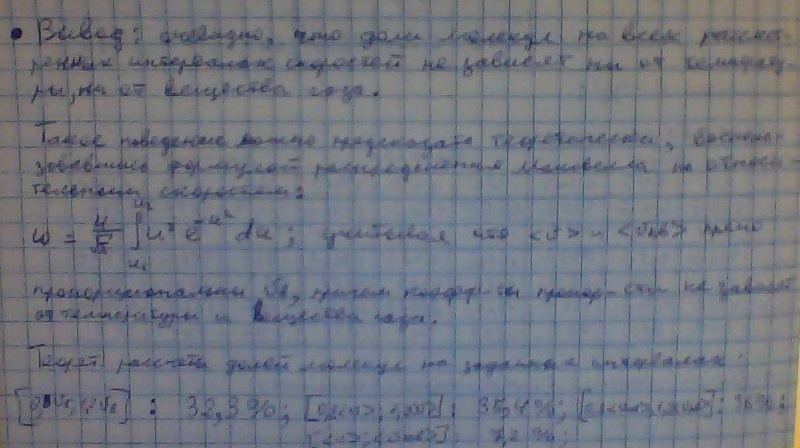 • Вывод: очевидно, что доли молекул на всех рассмот-
ренных интервалах скоростей не зависят ни от температу-
ры, ни от вещества газа.
Такое поведение можно предсказать теоретически, восполь-
зовавшись формулой распределения Максвелла по относи-
тельным скоростям:
ω = 4/√π ∫ u² e^(-u²) du ; учитывая что <v> и <vкв> прямо
пропорциональны vв, причем коэфф-ты пропор-сти не зависят
от температуры и вещества газа.
Теорет. рассчеты долей молекул на заданных интервалах:
: 32,3%;